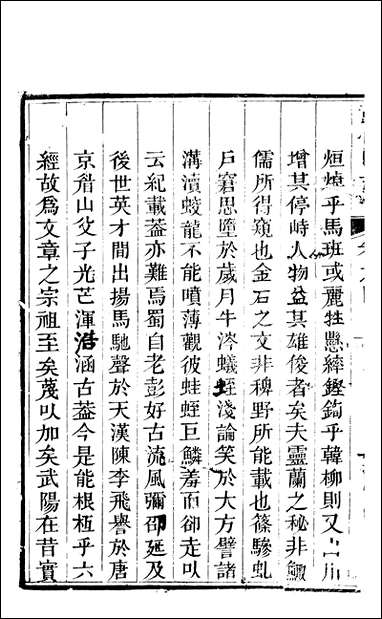 烜燁乎馬班或麗牲懸繂鏗鍧乎韓柳則又山川
增其停峙人物益其雄俊者矣夫靈蘭之秘非鯫
儒所得窺也金石之文非稗野所能載也篠驂虬
戸窘思墮於歲月牛涔蟻垤淺論笑於大方譬諸
溝瀆蛟龍不能噴薄觀彼蛙蛭巨鱗羞而卻走以
云紀載葢亦難焉蜀自老彭好古流風彌邵延及
後世英才間出揚馬馳聲於天漢陳李飛譽於唐
京眷山父子光芒渾浩涵古葢今是能根柢乎六
經故爲文章之宗祖至矣蔑以加矣武陽在昔實